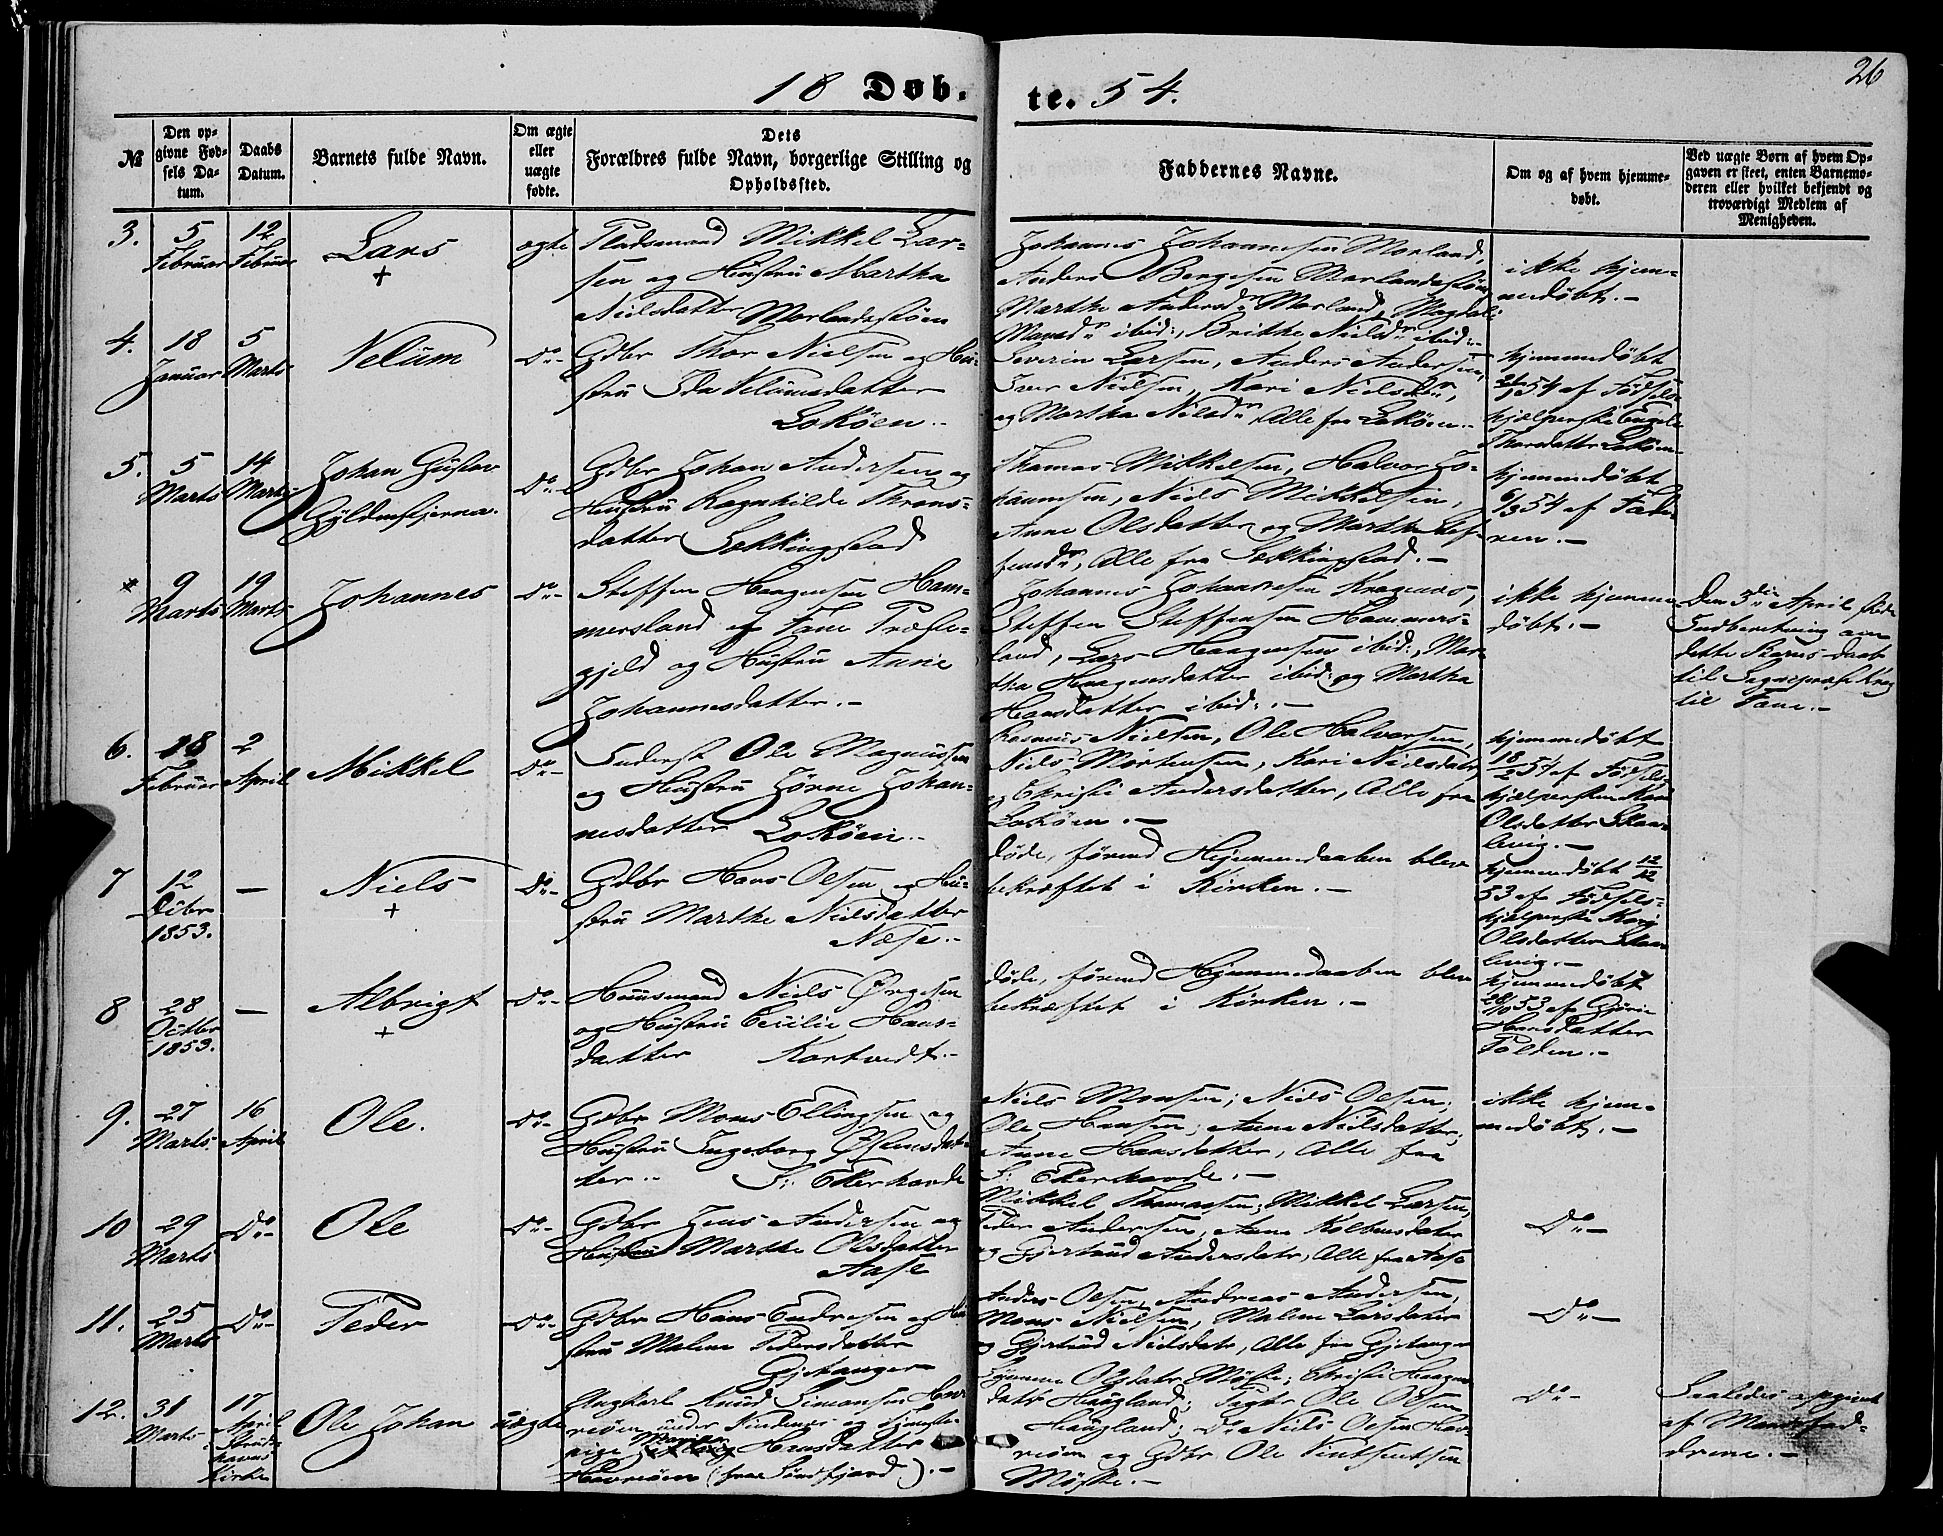 18 Døb-
te. 54.
26
№
Den op-
givne Fød-
sels Da-
tum.
Daabs
Datum.
Barnets fulde Navn.
Om ægte
eller
uægte
fødte.
Dets
Forældres fulde Navn, borgerlige Stilling og
Opholdssted.
Faddernes Navne.
Om og af hvem hjemme-
døbt.
Ved uægte Børn af hvem Op-
gaven er skeet, enten Barnemo-
deren eller hvilket bekjendt og
troværdigt Medlem af
Menigheden.
3.
5
Februar
12
Februar
Lars
+
ægte
Pladsmand Mikkel Lar-
sen og Hustru Martha
Nielsdatter Morlandsstøen
Johannes Johannesen Morland,
Anders Børgesen Morlandsstøen
Marthe Andersdr Morland, Magdali
Monsdr ibid:, Britthe Nielsdr ibid:-
ikke hjem-
medøbt.-
4.
18
Januar
5
Marts
Velüm
Do-
Gdbr Thor Nielsen og Hu-
stru Ida Velümsdatter
Lokøen..
Severin Larsen, Anders Andersen,
Iver Nielsen, Kari Nielsdr,
og Martha Nielsdr, Alle fra Lokøen..
hjemmedøbt
54 af Fødsels-
hjælperske Engele
Thorsdatter Lokøen
5.
5
Marts
14
Marts
Johan Güstav
Gyldenstjerna.
Do-
Gdbr Johan Andersen og
Hustru Ragnhilde Throns-
datter Sækkingstad
Thomas Mikkelsen, Halvor Jo-
hannesen, Niels Mikkelsen,
Anne Olsdatter og Marthe Stef-
fensdr, Alle fra Sækkingstad.-
hjemmedøbt
6/3 54 af Fade-
ren.-
*
9
Marts
19
Marts
Johannes
Do-
Steffen Haagensen Ham-
mersland af Fane Præste-
gjeld og Hustru Anne
Johannesdatter.-
Johannes Johannesen Kragenes,
Steffen Steffensen Hammers-
land, Lars Haagensen ibid:, Mar-
tha Haagensdatter ibid: og Martha
Hansdatter ibid:.-
ikke hjemme
døbt.-
Den 3die April skede
Indberetning om
dette Barns Daab
til Sognepræst Krog
til Fane.-
6.
18
Februar
2
April
Mikkel
Do-
Inderst Ole Magnussen
og Hustru Jørne Johan-
nesdatter Lokøen..
Rasmus Nielsen, Ole Halvorsen,
Niels Mortensen, Kari Nielsdatr
og Christi Andersdatter, Alle fra
Lokøen.-
hjemmedøbt
18/2 54 af Fødsels-
hjælpersken Kari
Olsdatter Skaa-
levig.-
7
12
Debr
1853.
-
Niels
+
Do-
Gdbr Hans Olsen og Hu-
stru Marthe Nielsdatter
Næse..
døde, førend Hjemmedaaben blev
bekræftet i Kirken.-
hjemmedøbt 12/12
53 af Fødsels-
hjælperske Kari
Olsdatter Skaa
levig.-
8
28
Octbr
1853.
-
Albrigt
+
Do-
Huusmand Niels Ørgesen
og Hustru Cecilie Hans-
datter Kartvedt.-
døde, førend Hjemmedaaben blev
bekræftet i Kirken.-
hjemmedøbt
28/10 53 af Gjøri
Hansdatter
Tolden.-
9.
27
Marts
16
April
Ole.
Do-
Gdbr Mons Ellingsen og
Hustru Ingeborg Østensdat-
ter.. S: Ekerhovde
Niels Monsen; Niels Olsen;
Ole Hansen; Anne Nielsdatter;
Anne Hansdatter, Alle fra
S: Ekerhovde.-
ikke hjem-
medøbt.-
10
29
Marts
Do-
Ole
Do-
Gdbr Jens Andersen og
Hustru Marthe Olsdatter
Aase
Mikkel Thomassen; Mikkel Larsen,
Peder Andersen, Anne Kolbensdatr
og Gjertrud Andersdatr, Alle fra Aase
Do-
11.
25
Marts
Do-
Peder
Do-
Gdbr Hans Endresen og Hu
stru Malene Pedersdatter
Gjetanger
Anders Olsen, Andreas Andersen,
Mons Nielsen, Malene Larsdatr
og Gjertrud Nielsdatr, Alle fra Gjetanger
Do-
12.
31
Marts
17
April
Kirke
Ole Johan
uægte
Ungkarl Knud Simonsen Hav-
Hansdatter
Havreøen (fra Søndfjord).-
Olsdatr Møste; Christi Haagens
datr Haugland; Ole Olsen
Haugland; Do Niels Olsen Hav
reøen og Gdbr Ole Vintsentsen
Møste.-
Do-
Saaledes opgivet
af Mandsfad-
drene.-